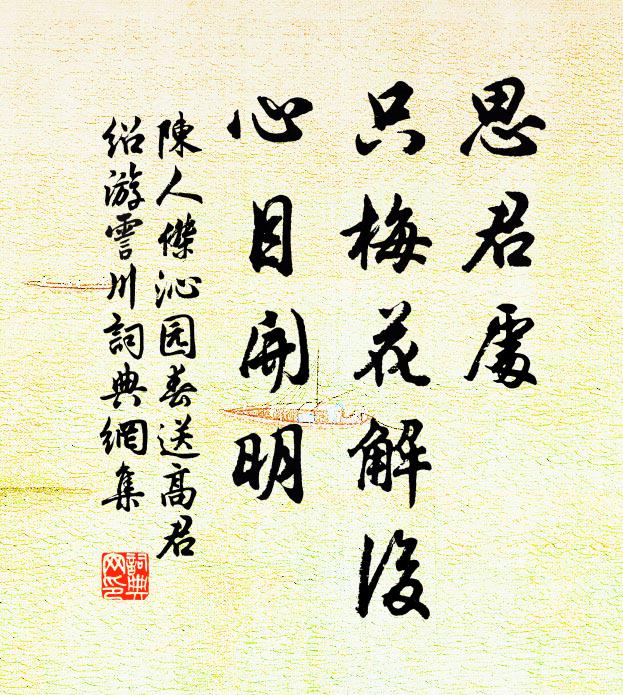 思君處
只梅花解后
心目開明
陳人傑沁园春送高君
绍游霅川詞典網集
詞典
网印